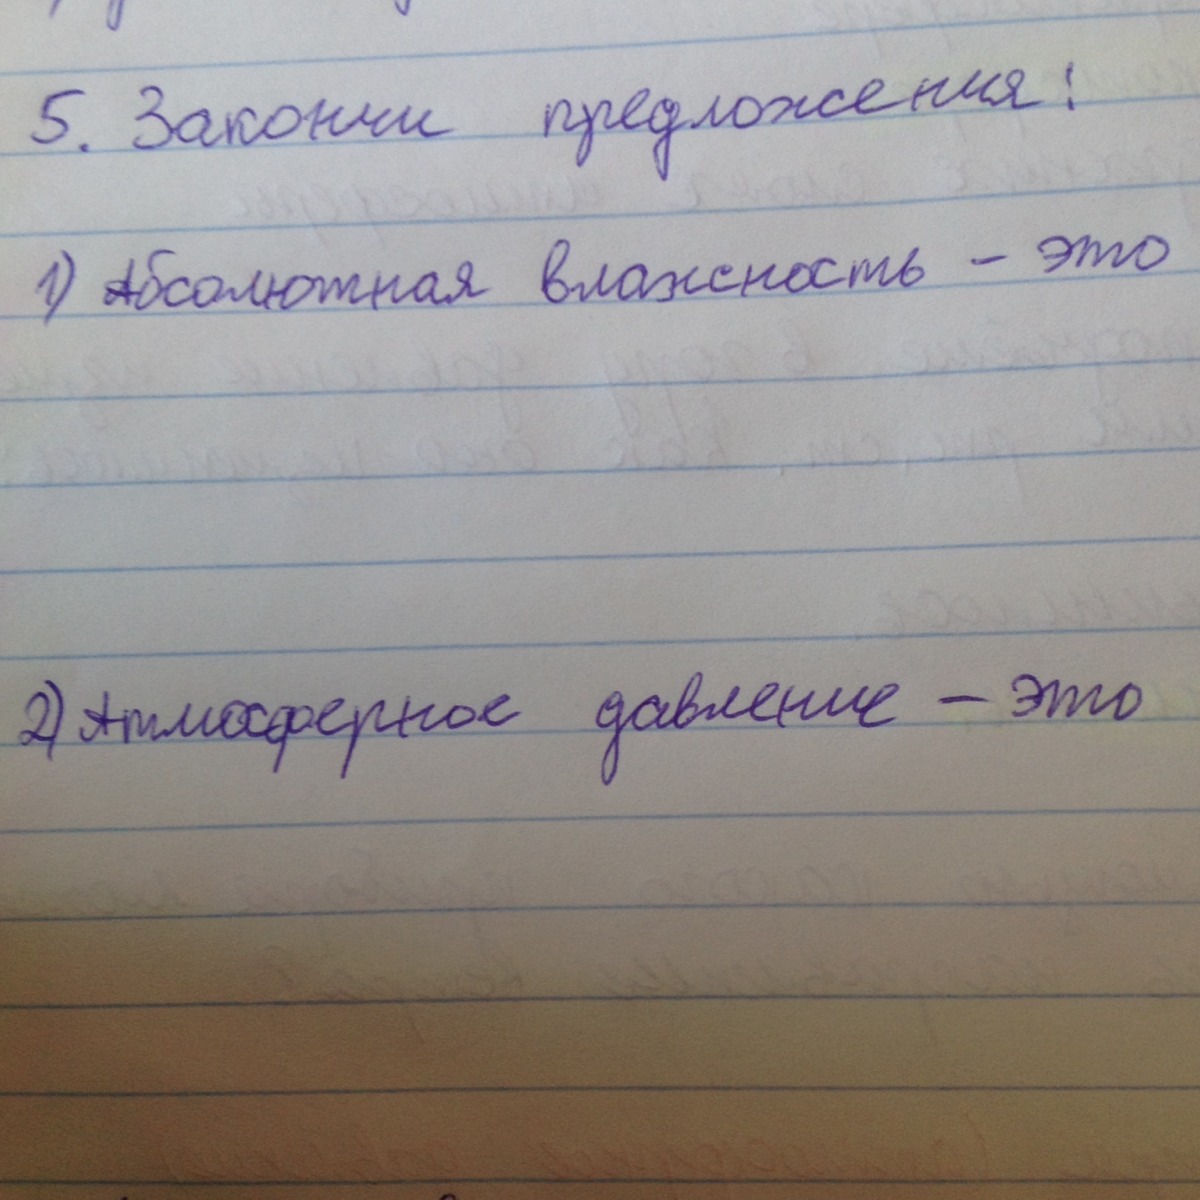 5. Закончи предложения:
1) Абсолютная влажность – это
2) Атмосферное давление – это